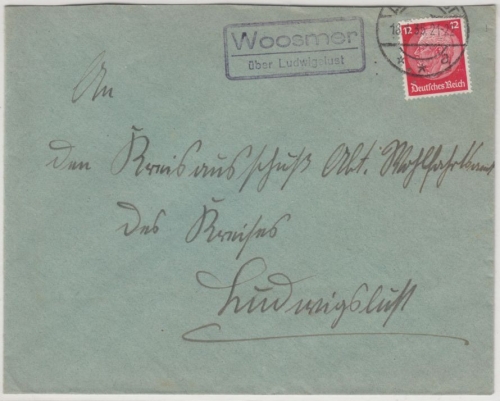 Woosmer
über Ludwigslust
12 12
Deutsches Reich
An
den Kreisausschuß Abt. Wohlfahrtsamt
des Kreises
Ludwigslust